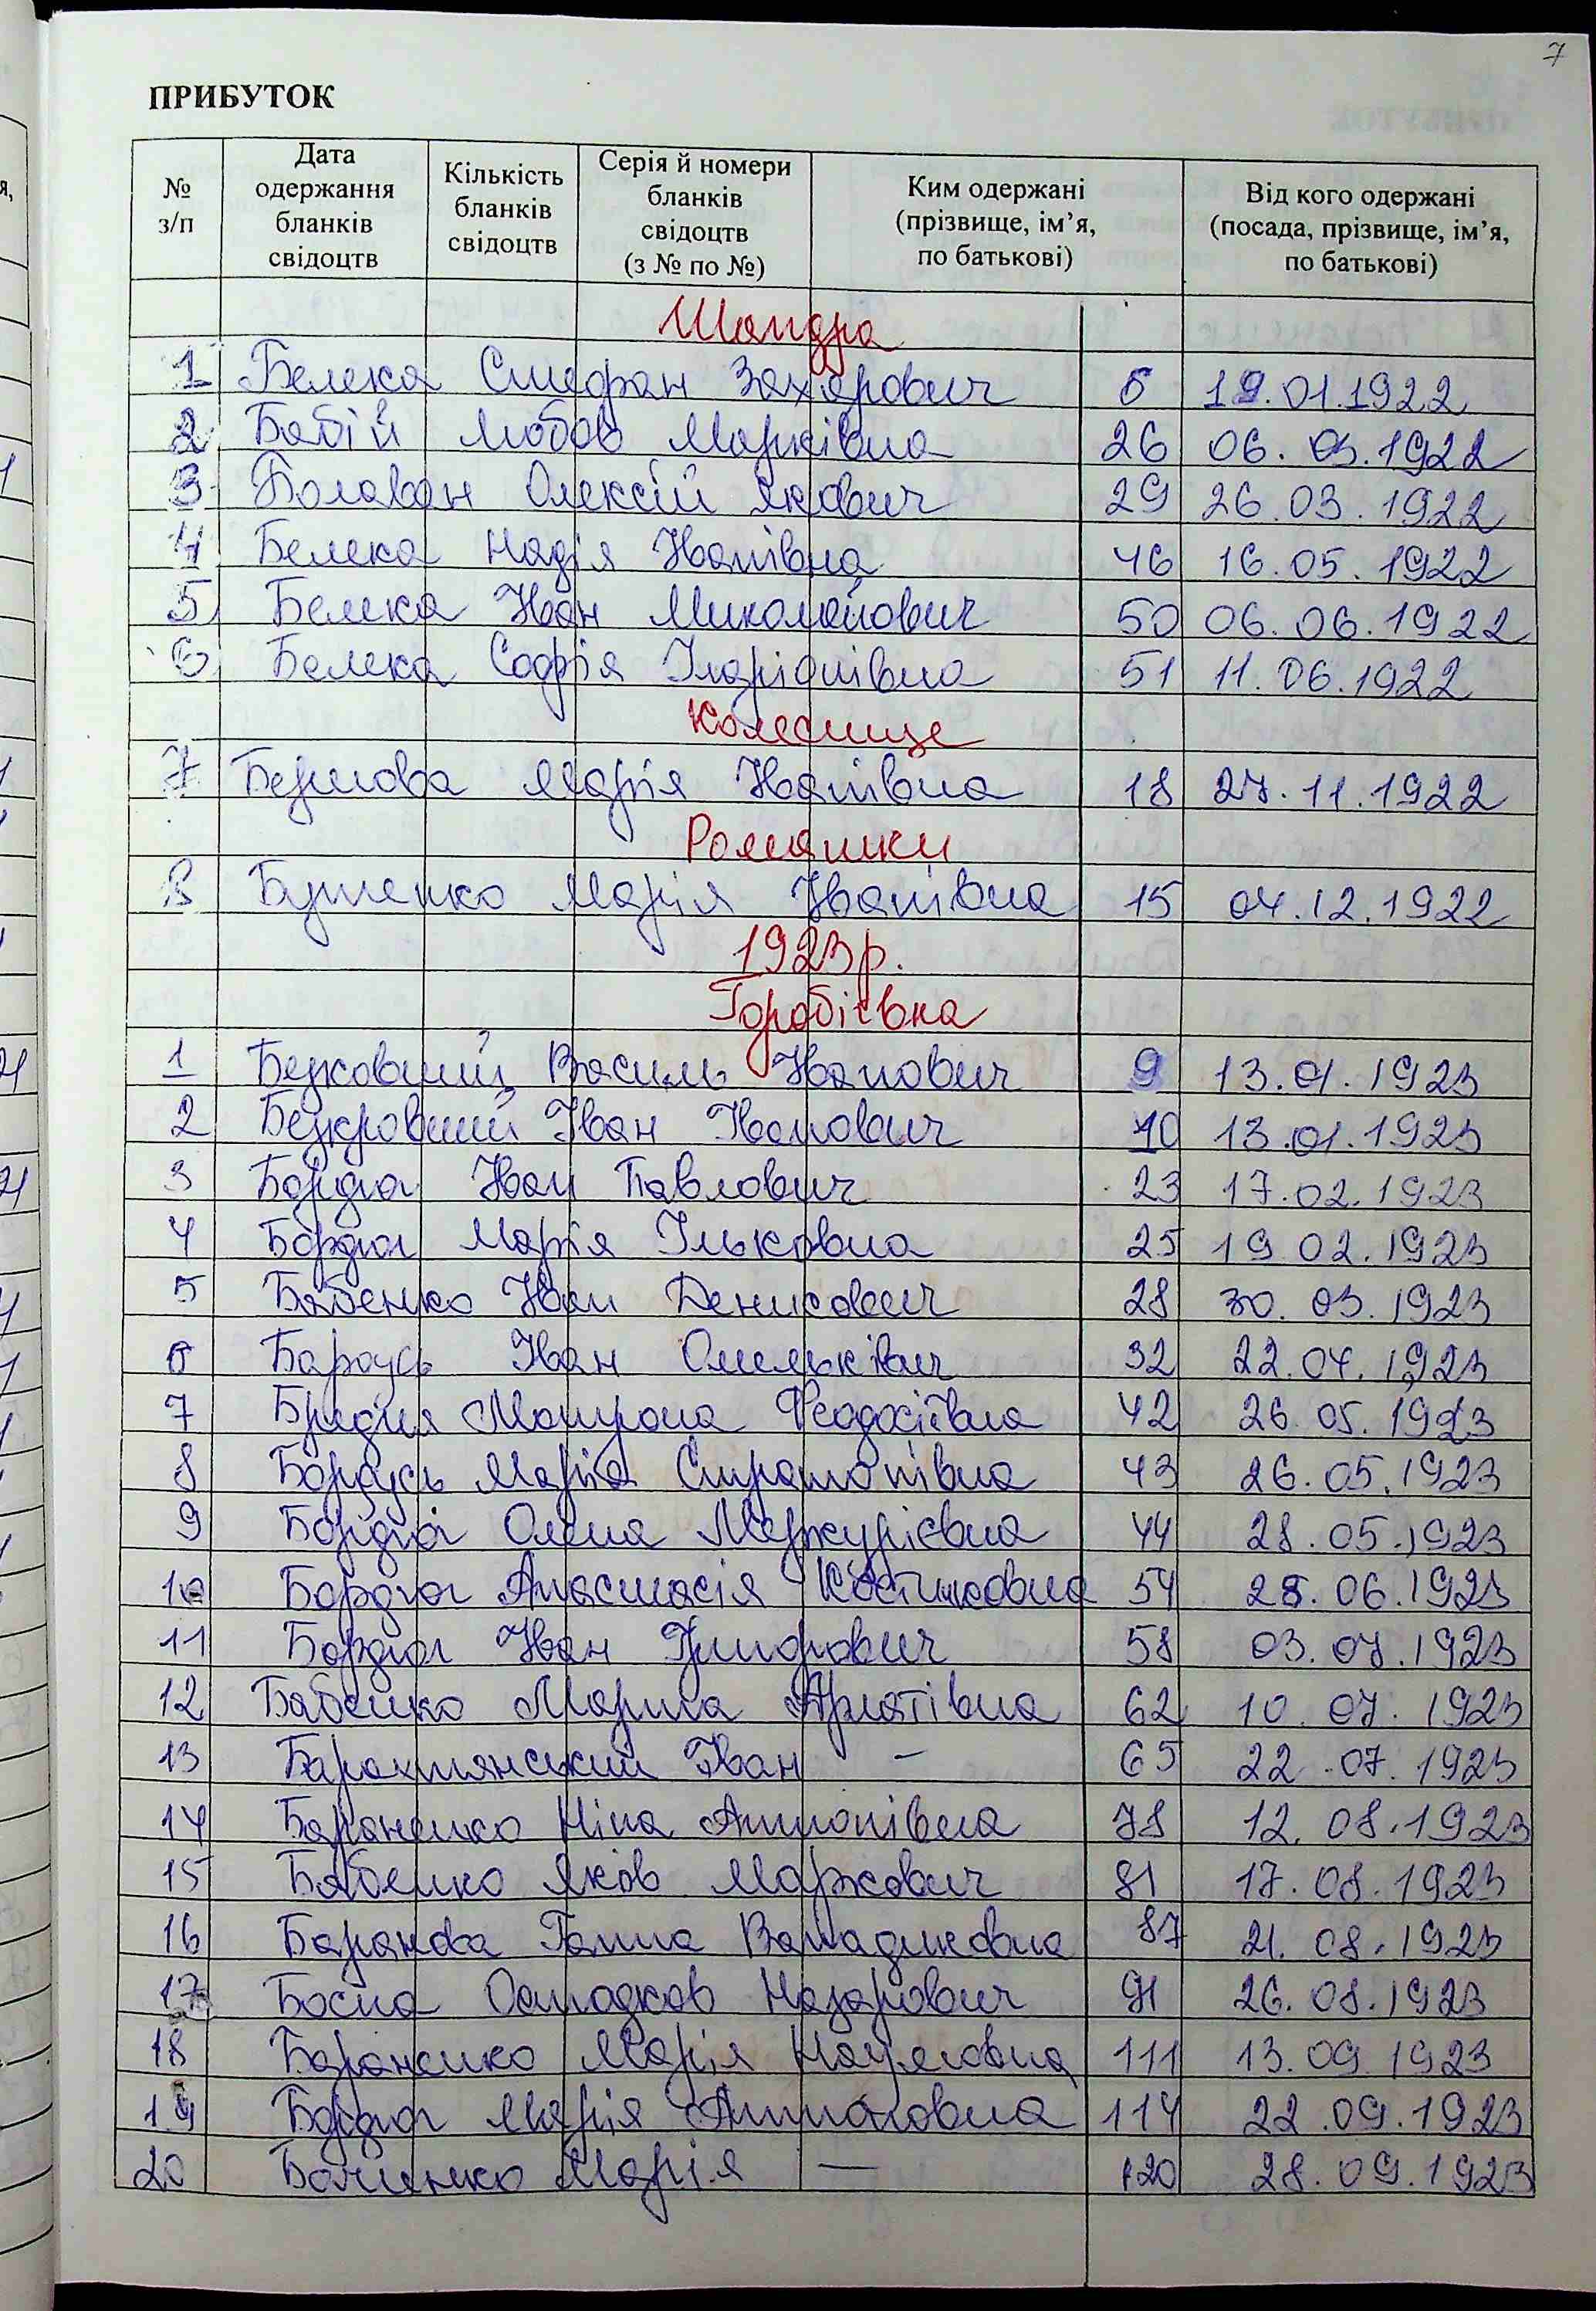 7
ПРИБУТОК
№ з/п
Дата одержання бланків свідоцтв
Кількість бланків свідоцтв
Серія й номери бланків свідоцтв (з № по №)
Ким одержані (прізвище, ім’я, по батькові)
Від кого одержані (посада, прізвище, ім’я, по батькові)
Шандра
1 Белека Стефан Захарович 6 19.01.1922
2 Бабій Любов Марківна 26 06.03.1922
3 Балаван Олексій Якович 29 26.03.1922
4 Белека Надія Іванівна 46 16.05.1922
5 Белека Іван Миколайович 50 06.06.1922
6 Белека Софія Іларіонівна 51 11.06.1922
Колесище
7 Марія Іванівна 18 27.11.1922
Ромашки
8 Бутенко Марія Іванівна 15 04.12.1922
1923р.
Горобіївка
1 Безковший Василь Іванович 9 13.01.1923
2 Безкровний Іван Іванович 10 13.01.1923
3 Бордюг Іван Павлович 23 17.02.1923
4 Бордюг Марія Ільковна 25 19 02.1923
5 Бабенко Іван Денисович 28 30.03.1923
6 Іван Омелькович 32 22.04.1923
7 Бридня Мотрона Феодосіївна 42 26.05.1923
8 Марія Стратонівна 43 26.05.1923
9 Бордюг Олена Меркуріївна 44 28.05.1923
10 Бордюг Анастасія 54 28.06.1923
11 Бордюг Іван 58 03.07.1923
12 Бабенко Марина 62 10.07.1923
13 Барахтянський Іван — 65 22.07.1923
14 Бараненко Ніна Антонівна 78 12.08.1923
15 Бабенко Яків Маркович 81 17.08.1923
16 Баранова Ганна 87 21.08.1923
17 Босна Остадков Назарович 91 26.08.1923
18 Бараненко Марія Наумовна 111 13.09.1923
19 Бордюг Марія Антоновна 114 22.09.1923
20 Марія — 120 28.09.1923